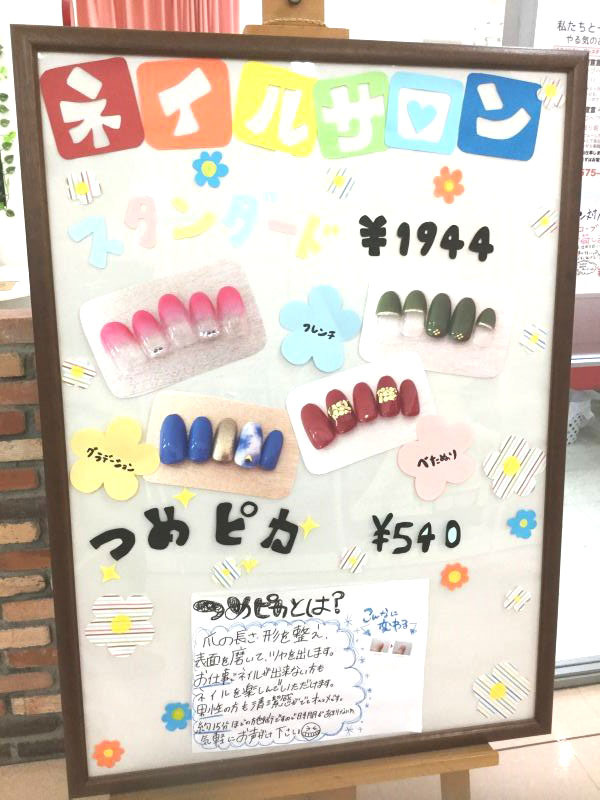 ネイルサロン
スタンダード ¥1944
フレンチ
グラデーション
べたぬり
つめピカ ¥540
つめピカとは?
こんなに
変わる
爪の長さ、形を整え、
表面を磨いて、ツヤを出します。
お仕事でネイルが出来ない方も
ネイルを楽しんでいただけます。
男性の方も清潔感がでてオススメです。
約15分ほどの施術ですので時間が
気軽にお声かけ下さい
私たちと一
やる気のあ